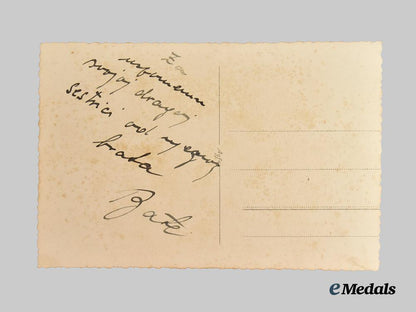 Za
uspomenu
svojoj dragoj
sestrici od njenog
brata
Bate
eMedals